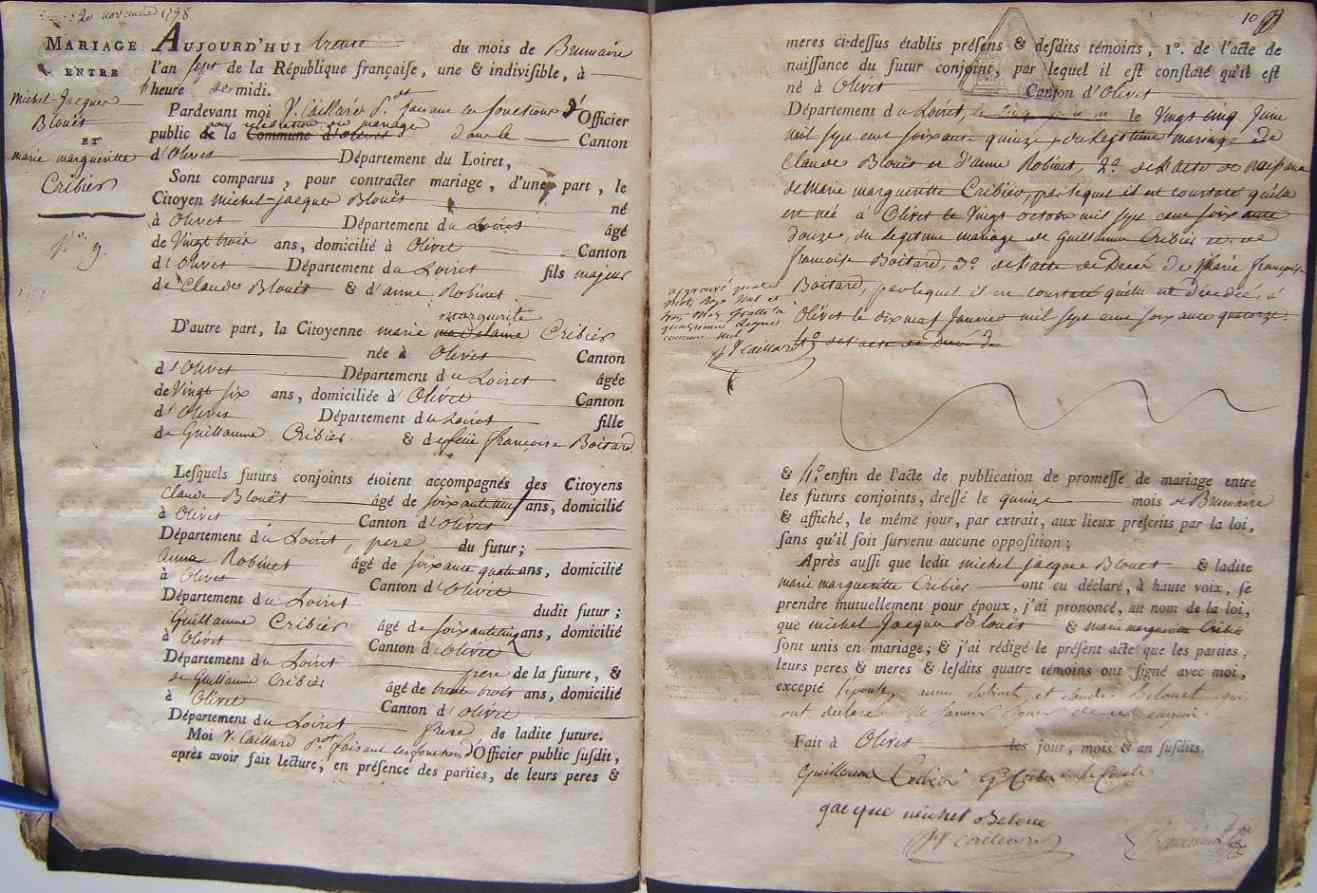 20 novembre 1798
MARIAGE
ENTRE
Michel-Jacques
Blouët
ET
marie margueritte
Cribier
n.° 9.
AUJOURD'HUI trente du mois de Brumaire
l'an sept de la République françaife, une & indivifible, à
heure de midi.
Pardevant moi V. Caillard p.dt faisant les fonctions d'Officier
public de la Commune d'Olivet dans le Canton
d'Olivet Département du Loiret,
Sont comparus, pour contracter mariage, d'une part, le
Citoyen Michel-Jacques Blouët né
à Olivet Département du Loiret âgé
de Vingt trois ans, domicilié à Olivet Canton
d'Olivet Département du Loiret fils majeur
de Claude Blouët & d'anne Robinet
margueritte
D'autre part, la Citoyenne marie madelaine Cribier
née à Olivet Canton
d'Olivet Département du Loiret âgée
de Vingt six ans, domiciliée à Olivet Canton
d'Olivet Département du Loiret fille
de Guillaume Cribier & de feüe françoise Boitard
Lefquels futurs conjoints étoient accompagnés des Citoyens
Claude Blouët âgé de ans, domicilié
à Olivet Canton d'Olivet
Département du Loiret, pere du futur;
Anne Robinet âgé de soixante quatre ans, domicilié
à Olivet Canton d'Olivet
Département du Loiret dudit futur;
Guillaume Cribier âgé de ans, domicilié
à Olivet Canton d'Olivet
Département du Loiret pere de la future, &
de Guillaume Cribier âgé de trente trois ans, domicilié
à Olivet Canton d'Olivet
Département du Loiret frere de ladite future.
Moi V. Caillard p.dt faisant les fonctions d'Officier public fufdit,
après avoir fait lecture, en préfence des parties, de leurs peres &
10
meres ci-deffus établis préfens & defdits témoins, 1°. de l'acte de
naiffance du futur conjoint, par lequel il eft conftaté qu'il eft
né à Olivet Canton d'Olivet
Département du Loiret, le Vingt cinq Juin
mil sept cent soixante quinze, du legitime mariage de
Claude Blouët et d'anne Robinet, 2°. de l'acte de naissance
de Marie margueritte Cribier, par lequel il est constaté qu'elle
est née à Olivet le Vingt octobre mil sept cent soixante
douze, du legitime mariage de Guillaume Cribier et de
françoise Boitard, 3°. de l'acte de Decès de Marie françoise
Boitard, par lequel il est constaté qu'elle est décédée, à
Olivet le dix neuf Janvier mil sept cent soixante quatorze.
4° de l'acte de Decès de
approuvé quatre
mots Rayé Nul et
V. Caillard
& 4° enfin de l'acte de publication de promeffe de mariage entre
les futurs conjoints, dreffé le quinze mois de Brumaire
& affiché, le même jour, par extrait, aux lieux prefcrits par la loi,
fans qu'il foit furvenu aucune oppofition;
Après auffi que ledit michel Jacques Blouet & ladite
marie margueritte Cribier ont eu déclaré, à haute voix, fe
prendre mutuellement pour époux, j'ai prononcé, au nom de la loi,
que michel Jacques Blouët & marie margueritte Cribier
font unis en mariage; & j'ai rédigé le préfent acte que les parties,
leurs peres & meres & lefdits quatre témoins ont figné avec moi,
excepté l'épouse, anne robinet et Claude Blouet qui
ont declaré ne savoir signer de ce enquis.
Fait à Olivet les jour, mois & an fufdits.
Guillaume Cribier
gacque michel Beloue
V. Caillard